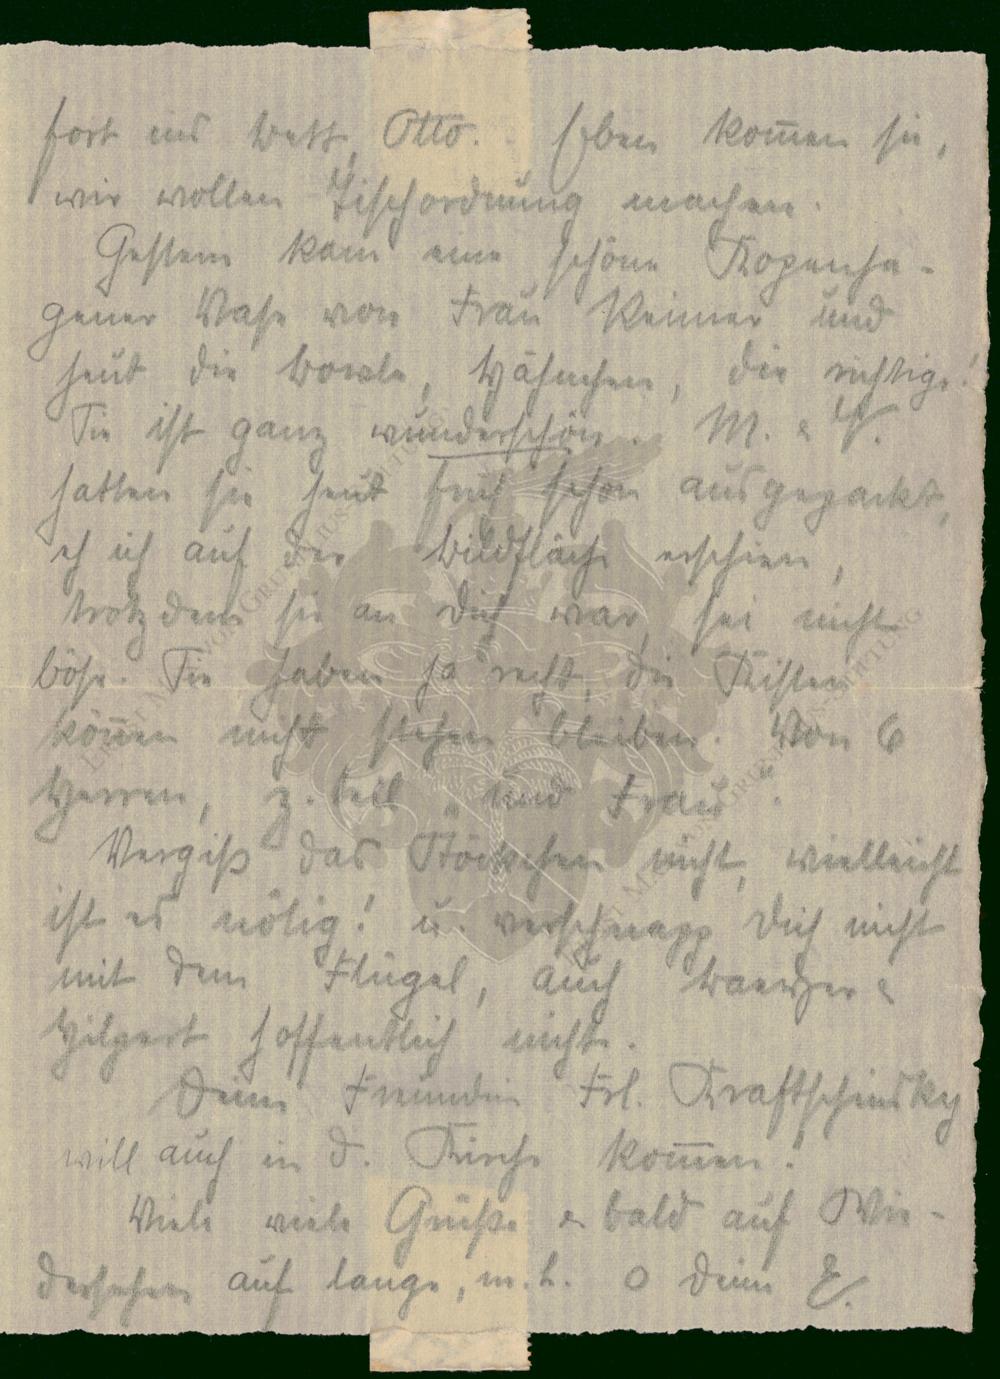 fort ins Bett, Otto. Eben kom̅en sie,
wir wollen Tischordnung machen.
Gestern kam eine schöne Kopenha-
gener Vase von Frau Reimer und
heut die Bowle, Hähnchen, die richtige!
Sie ist ganz wunderschön. M. & V.
hatten sie heut früh schon ausgepackt,
eh ich auf der Bildfläche erschien,
trotzdem sie an Dich war, sei nicht
böse. Sie haben ja recht, die Kisten
kön̅en nicht stehen bleiben. Von 6
Herren, z. teil „und Frau“.
Vergiß das nicht, vielleicht
ist es nötig! u. verschnapp Dich nicht
mit dem Flügel, auch &
Hilpert hoffentlich nicht.
Deine Freundin Frl. Kraftschinsky
will auch in d. Kirche kom̅en!
Viele viele Grüße & bald auf Wie-
dersehen auf lange, m. l. O Deine E.